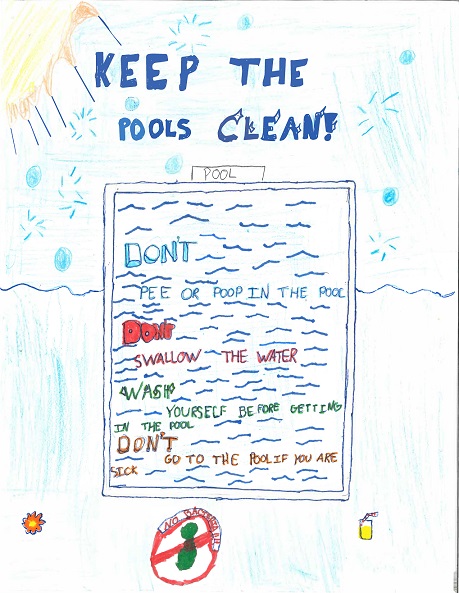 KEEP THE
POOLS CLEAN!
POOL
DON'T
PEE OR POOP IN THE POOL
DONT
SWALLOW THE WATER
WASH
YOURSELF BEFORE GETTING
IN THE POOL
DON'T
GO TO THE POOL IF YOU ARE
SICK
NO